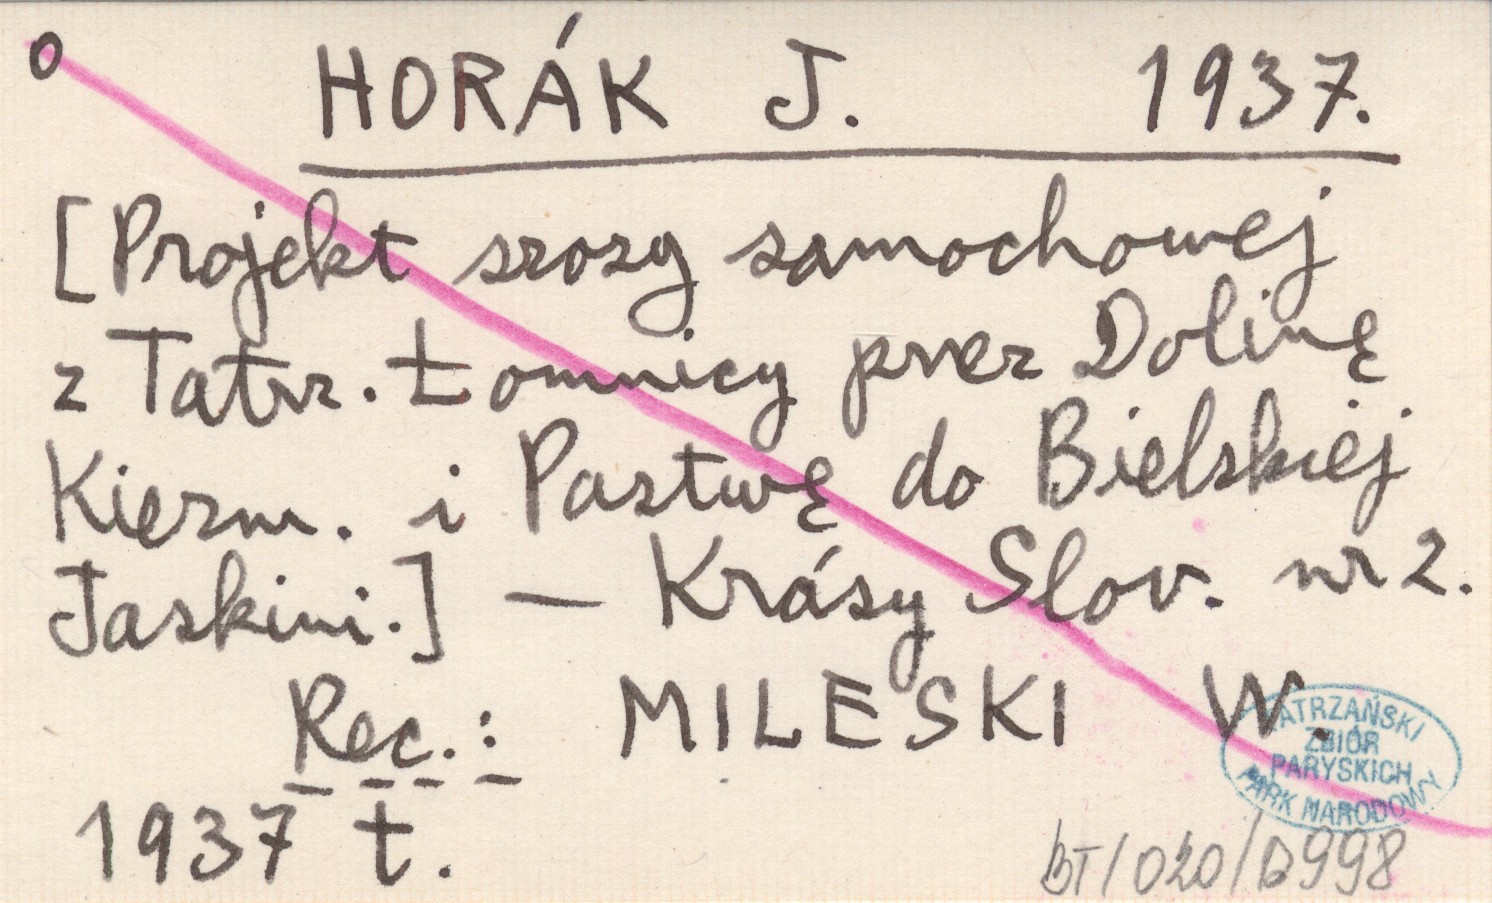 o HORÁK J. 1937.
[Projekt szosy samochowej
z Tatrz. Łomnicy przez Dolinę
Kiezm. i Pastwę do Bielskiej
Jaskini.] — Krásy Slov. nr 2.
Rec.: MILESKI W.
TATRZAŃSKI
ZBIÓR
PARYSKICH
PARK NARODOWY
1937 t.
BT/020/B998